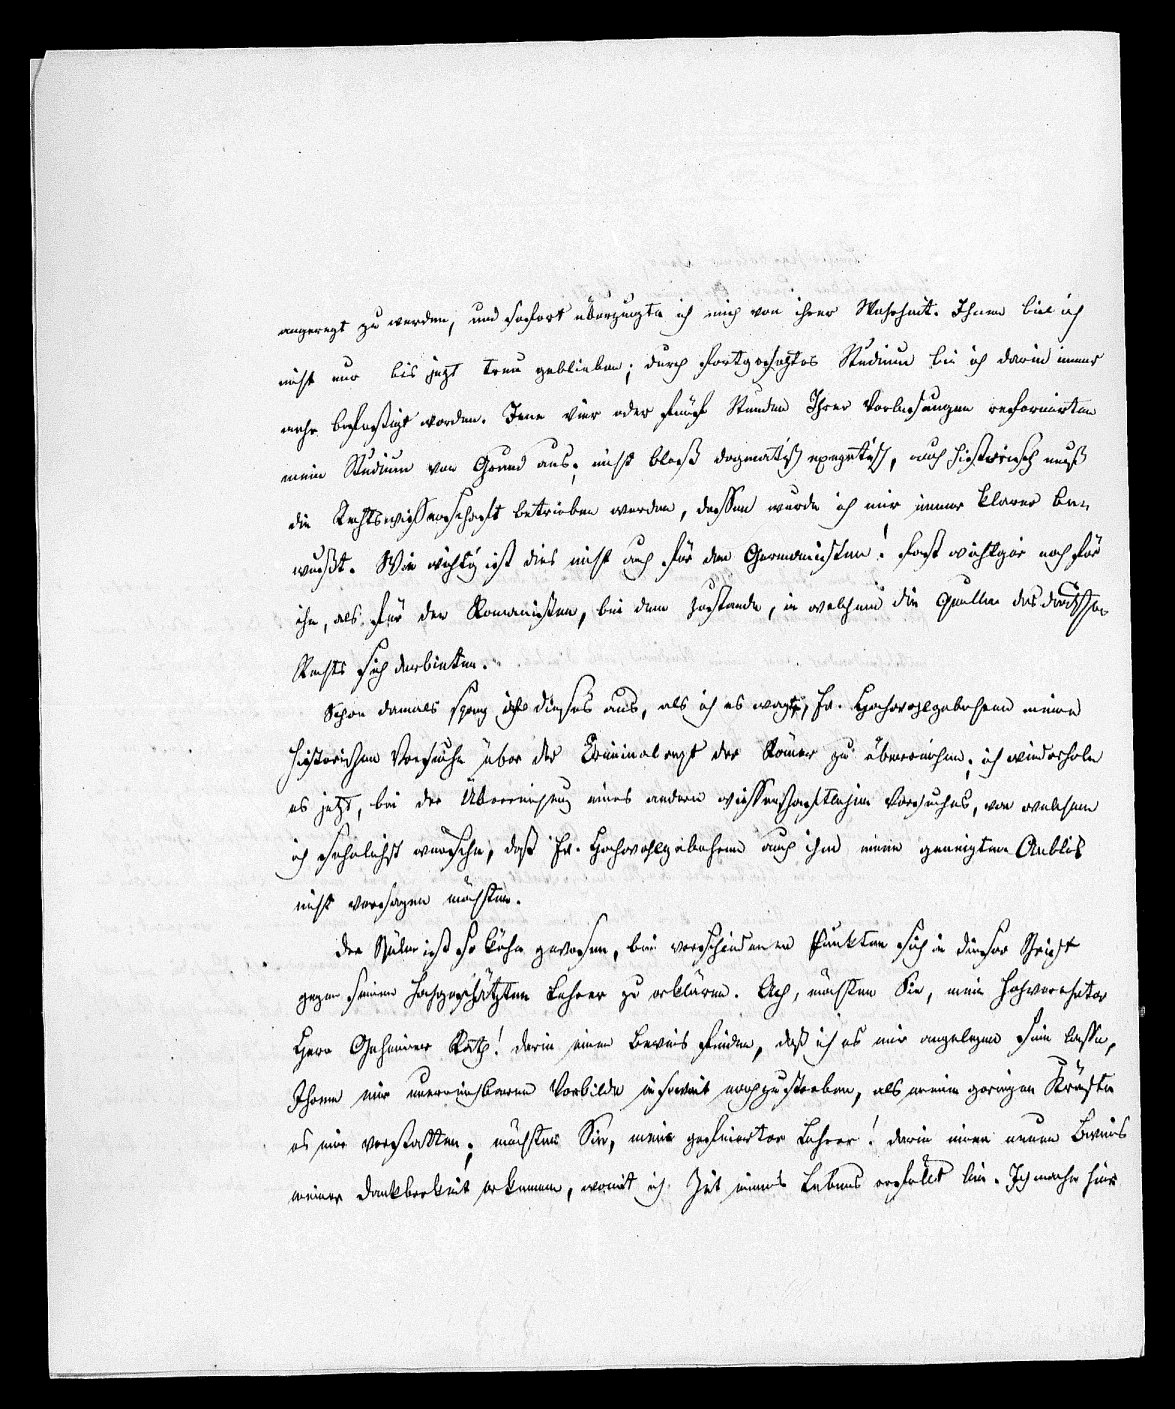 angeregt zu werden, und sofort überzeugte ich mich von ihrer Wahrheit. Ihnen bin ich
nicht nur bis jetzt treu geblieben; durch fortgesetztes Studium bin ich darin immer
mehr befestigt worden. Jene vier oder fünf Stunden Ihrer Vorlesungen reformirten
mein Studium von Grund aus; nicht bloß dogmatisch exegetisch, auch historisch muß
die Rechtswissenschaft betrieben werden, dessen wurde ich mir immer klarer be-
wußt. Wie wichtig ist dies nicht auch für den Germanisten! fast wichtiger noch für
ihn, als für den Romanisten, bei dem Zustande, in welchem die Quellen des deutschen
Rechts sich darbieten.
Schon damals sprach ich dieses aus, als ich es wagte, Ew. Hochwohlgebohren meine
historischen Versuche über das Criminalrecht der Römer zu überreichen; ich wiederhole
es jetzt, bei der Überreichung eines andern wissenschaftlichen Versuches, von welchem
ich sehnlichst wünsche, daß Ew. Hochwohlgebohren auch ihm einen geneigten Anblick
nicht versagen möchten.
Der Schüler ist so kühn gewesen, bei verschiedenen Punkten sich in dieser Schrift
gegen seinen hochgeschätzten Lehrer zu erklären. Ach, möchten Sie, mein hochverehrter
Herr Geheimer Rath! darin einen Beweis finden, daß ich es mir angelegen sein lasse,
Ihrem mir unerreichbaren Vorbilde insoweit nachzustreben, als meine geringen Kräfte
es mir verstatten; möchten Sie, mein gefeierter Lehrer! darin einen neuen Beweis
meiner Dankbarkeit erkennen, womit ich Zeit meines Lebens erfüllt bin. Ich mache hier